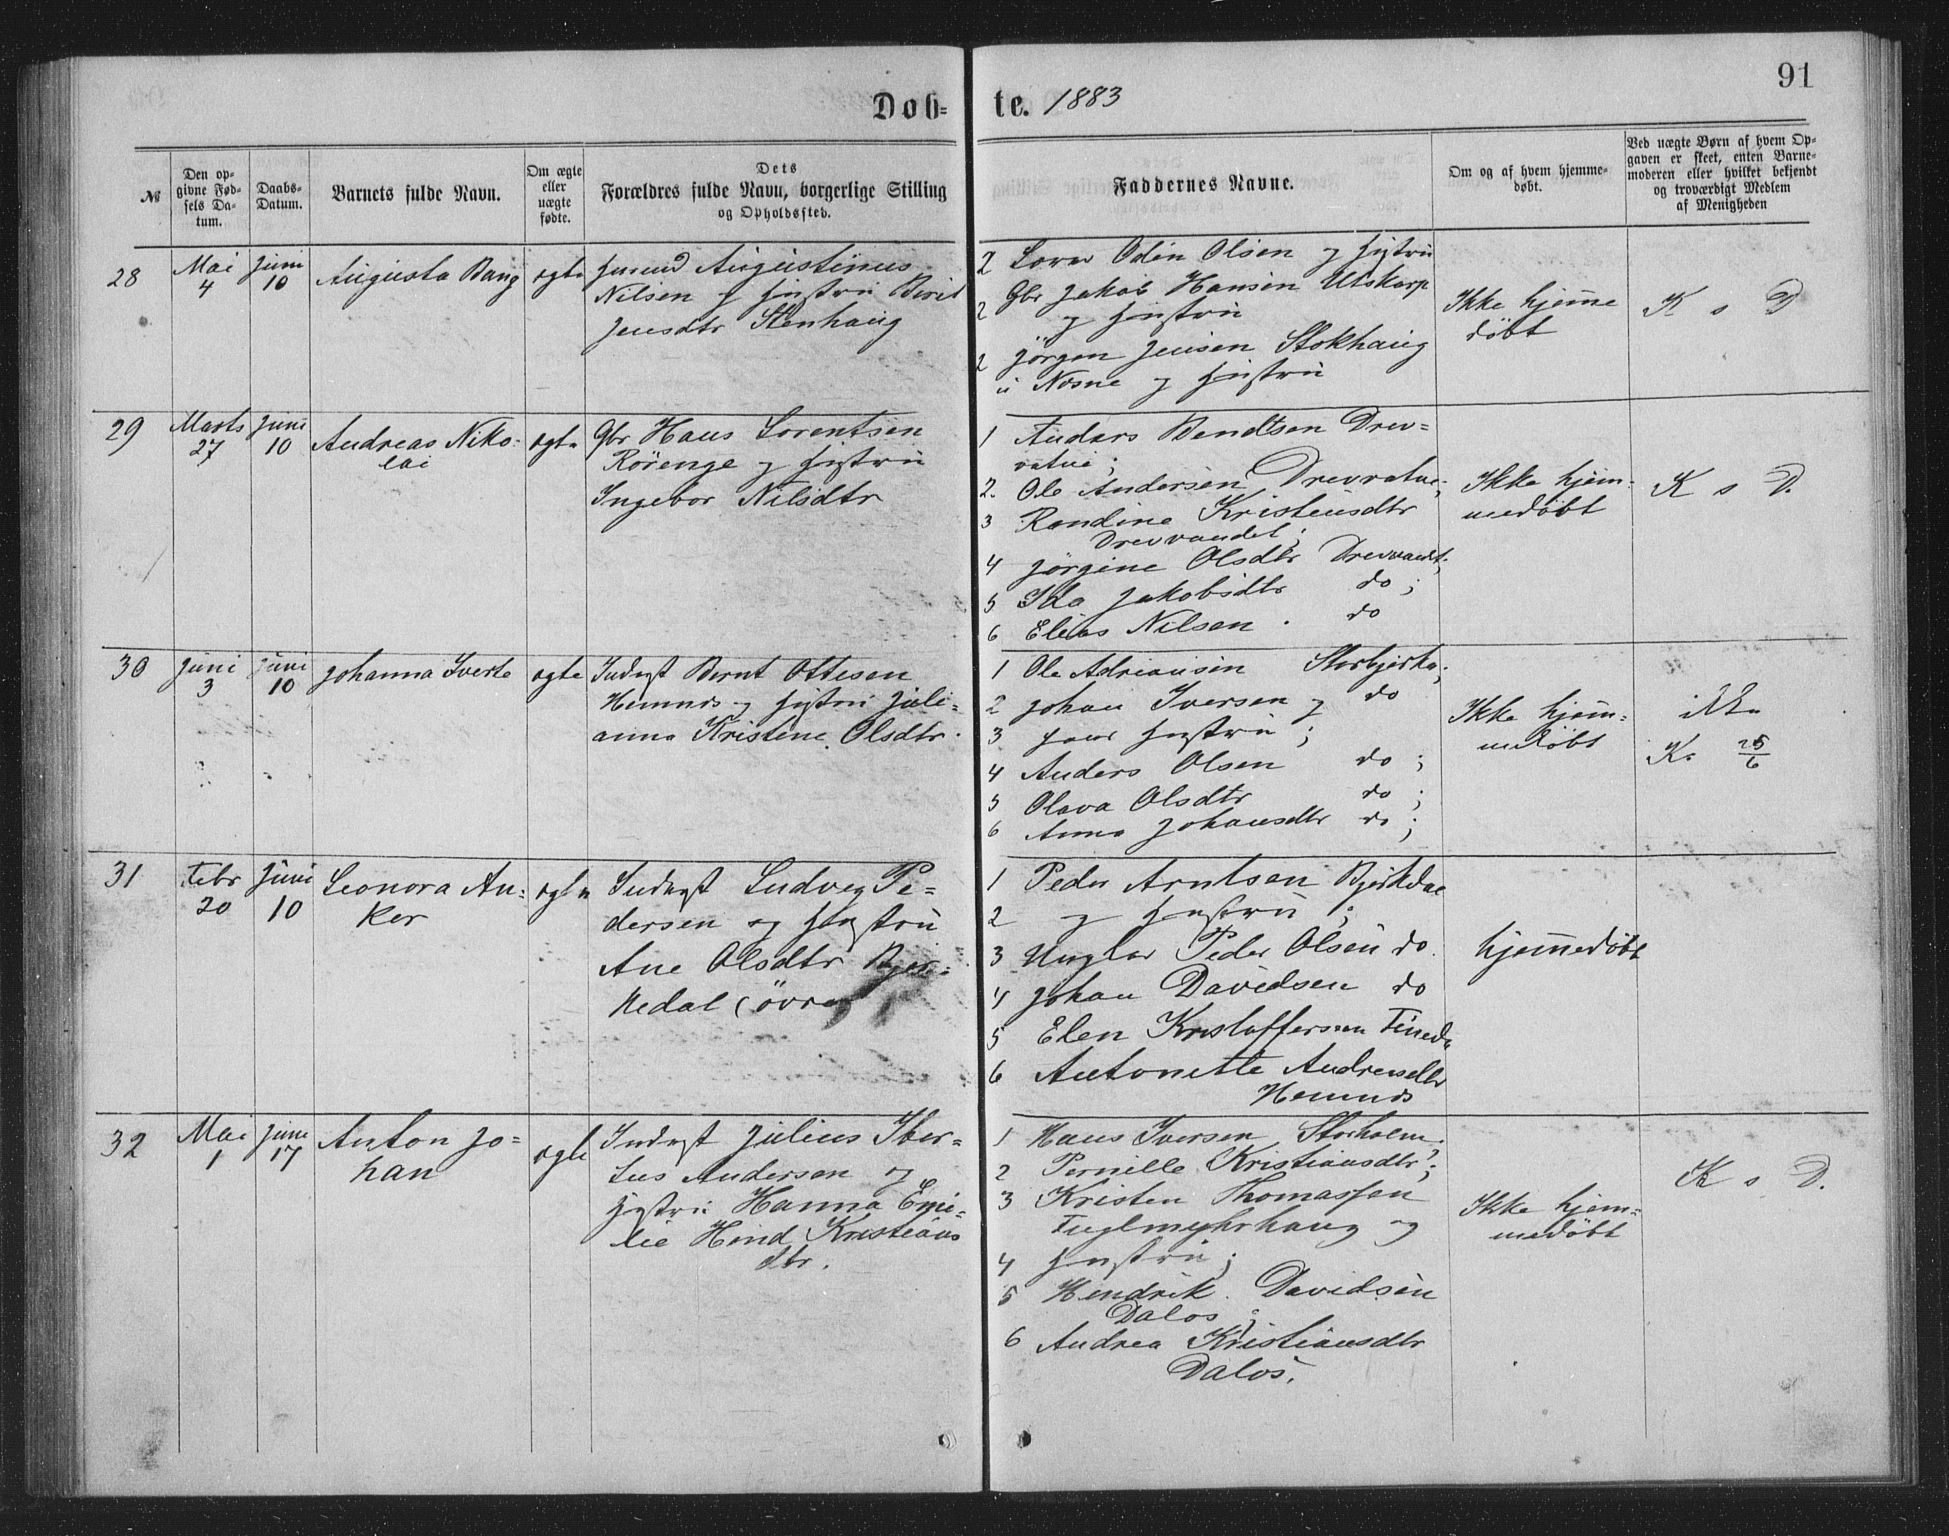 91
Døb= te. 1883
№
Den op-
givne Fød-
sels Da-
tum.
Daabs-
Datum.
Barnets fulde Navn.
Om ægte
eller
uægte
fødte.
Dets
Forældres fulde Navn, borgerlige Stilling
og Opholdssted.
Faddernes Navne.
Om og af hvem hjemme-
døbt.
Ved uægte Børn af hvem Op-
gaven er skeet, enten Barne-
moderen eller hvilket bekjendt
og troværdigt Medlem
af Menigheden
28
Mai
4
Juni
10
Augusta Bang
ægte
Augustinus
Nilsen og Hustru Berit
Jensdtr Stenhaug
2 Odin Olsen og Hustru
Gbr Jakob Hansen Utskarp
2 og Hustru
2 Jørgen Jensen Stokhaug
i Næsne og Hustru
Ikke hjemme
døbt
K s D
29
Marts
27
Juni
10
Andreas Niko-
lai
ægte
Gbr Hans Lorentsen
Rørenge og Hustru
Ingebor Nilsdtr
1 Anders Bendtsen Drev=
vatne;
2. Ole Andersen Drevvatne;
3 Randine Kristensdtr
Drevvandet;
4 Jørgine Olsdtr Drevvandt;
5 Ida Jakobsdtr do;
6 Elias Nilsen. do
Ikke hjem-
medøbt
K s D.
30
Juni
3
Juni
10
Johanna Sverke
ægte
Inderst Bernt Ottesen
Hemnes og Hustru Juli=
anna Kristine Olsdtr.
1 Ole Adriansen Storbjerka;
2 Johan Iversen og do
3 hans Hustru;
4 Anders Olsen do;
5 Olava Olsdtr do;
6 Anna Johansdtr do;
Ikke hjem-
medøbt
ikke
K. 25/6
31
Febr
20
Juni
10
Leonora An-
ker
ægte
Inderst Ludvig Pe=
dersen og Hustru
Ane Olsdtr Bjer-
kedal (øvre)
1 Peder Arntsen Bjerkdal
2 og Hustru;
3 Ungkar Peder Olsen do.
4 Johan Davidsen do
5 Elen Kristoffersen
6 Antonette Andreasdtr
Hemnes
hjemmedøbt
32
Mai
1
Juni
17
Anton Jo=
han
ægte
Inderst Julius Iber=
tus Andersen og
Hustru Hanna Emi-
lie Hind Kristians
dtr.
1 Hans Iversen Storholm.
2 Pernille Kristiansdtr;
3 Kristen Thomassen
Fuglmyrhaug og
4 Hustru;
5 Hendrik Davidsen
Dalos;
6 Andrea Kristiansdtr
Dalos.
Ikke hjem-
medøbt
K s D.